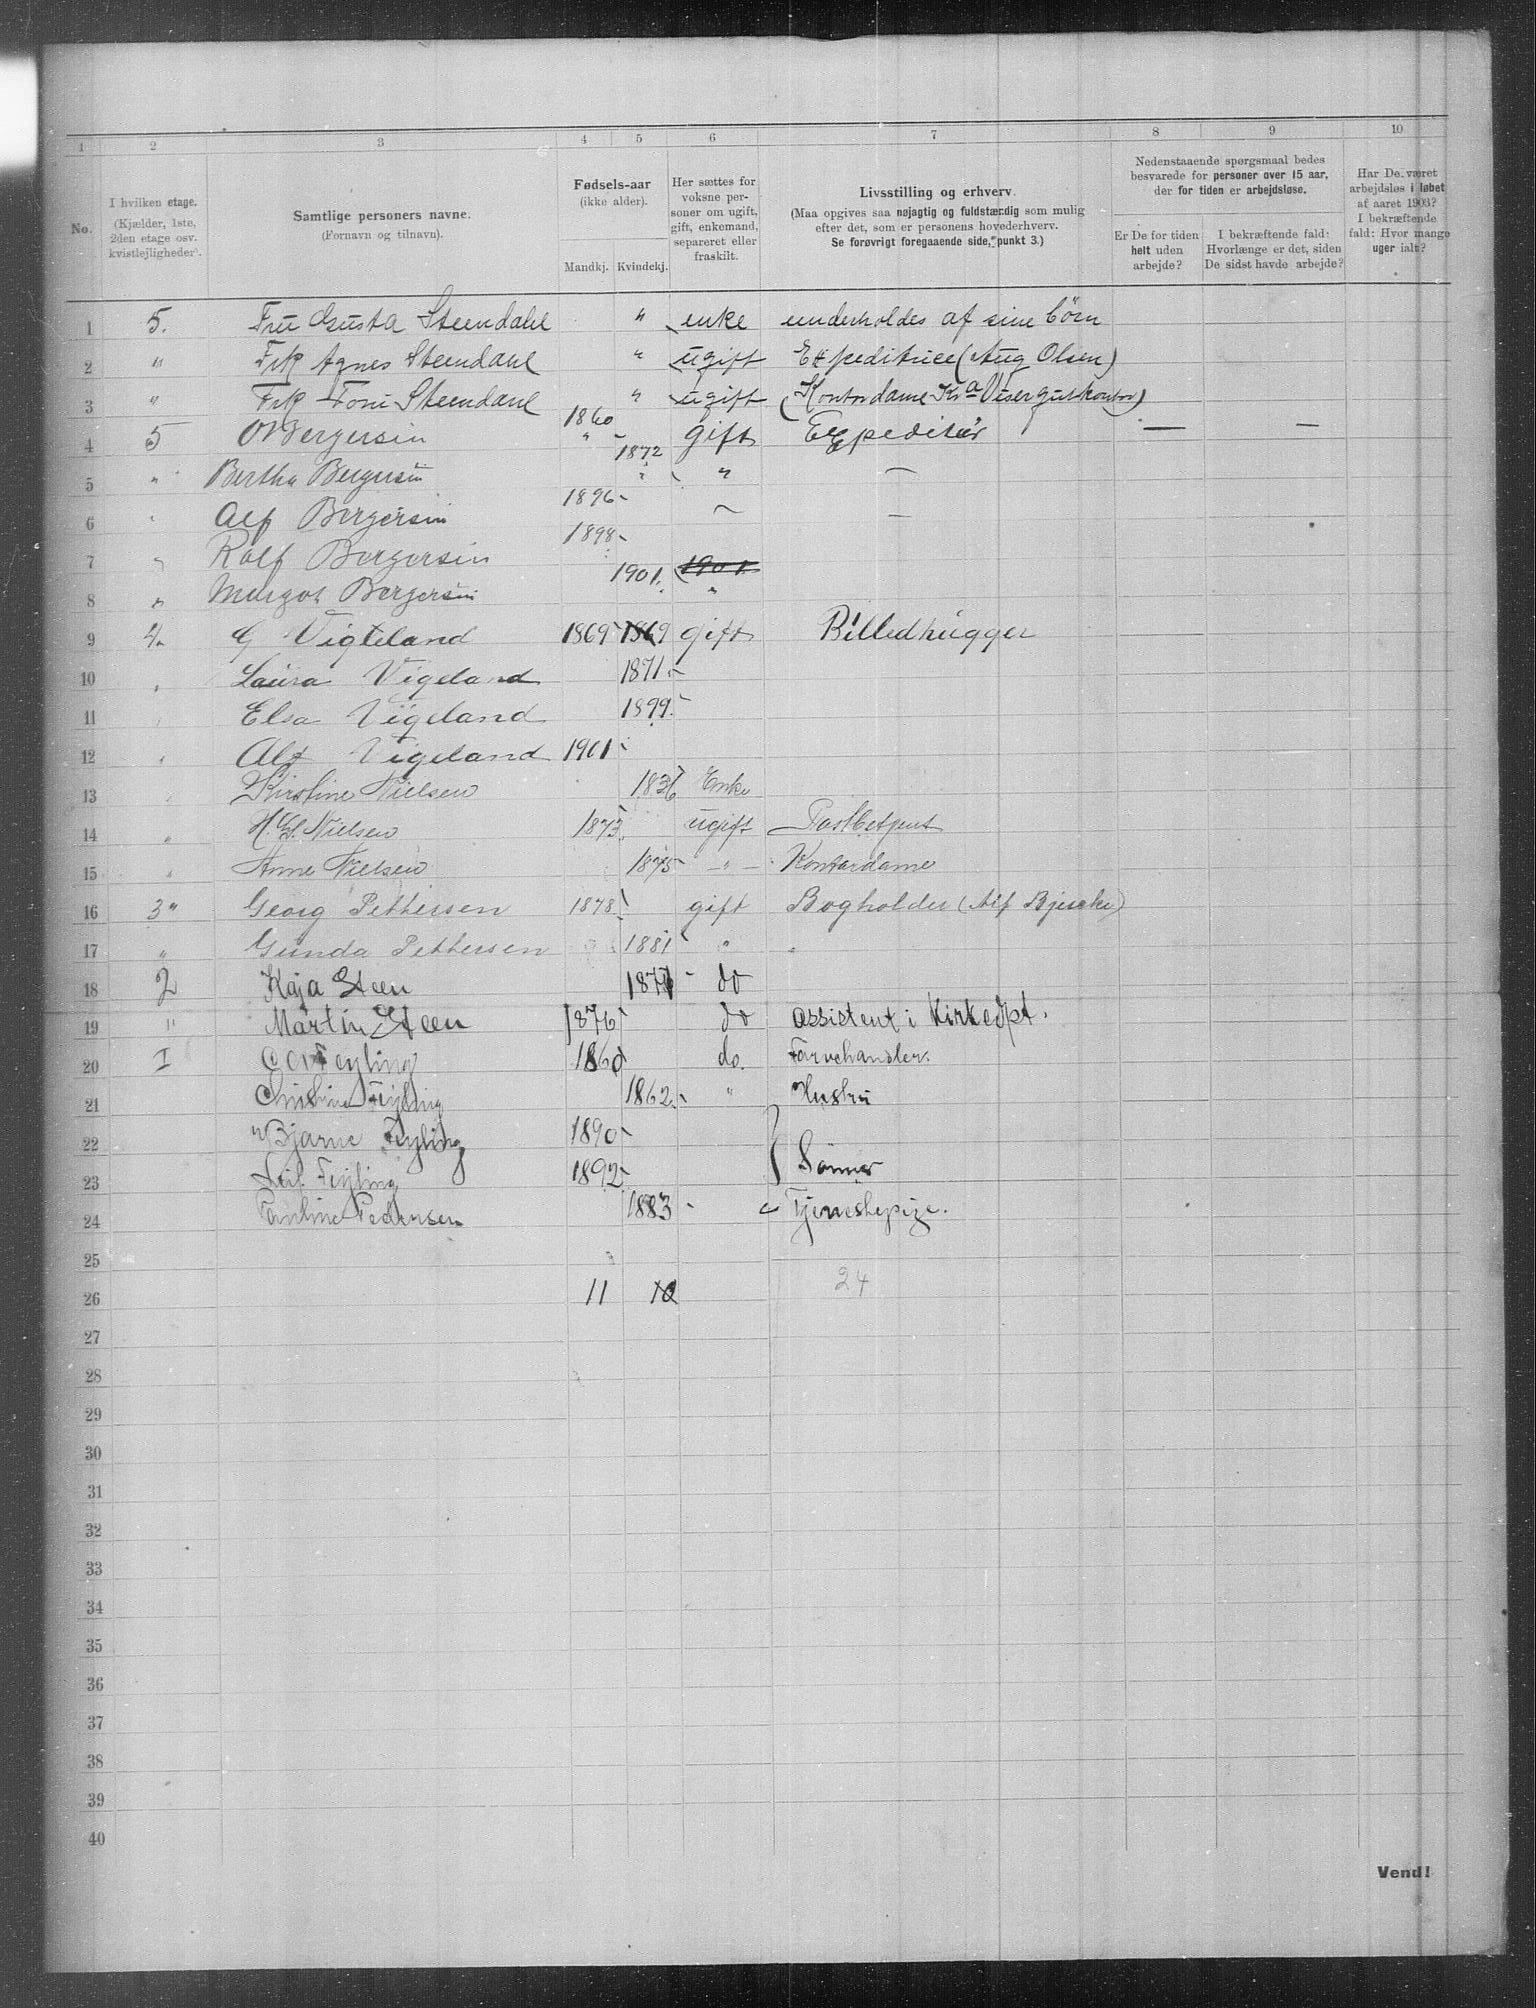 1 2 3 4 5 6 7 8 9 10
No.
I hvilken etage.
(Kjælder, 1ste,
2den etage osv.
kvistlejligheder).
Samtlige personers navne.
(Fornavn og tilnavn).
Fødsels-aar
(ikke alder).
Mandkj. Kvindekj.
Her sættes for
voksne per-
soner om ugift,
gift, enkemand,
separeret eller
fraskilt.
Livsstilling og erhverv.
(Maa opgives saa nøjagtig og fuldstændig som mulig
efter det, som er personens hovederhverv.
Se forøvrigt foregaaende side, punkt 3.)
Nedenstaaende spørgsmaal bedes
besvarede for personer over 15 aar,
der for tiden er arbejdsløse.
Er De for tiden
helt uden
arbejde?
I bekræftende fald:
Hvorlænge er det, siden
De sidst havde arbejde?
Har De været
arbejdsløs i løbet
af aaret 1903?
I bekræftende
fald: Hvor mange
uger ialt?
1 5. Fru Gusta Steendahl " enke underholdes af sine börn
2 " Frk Agnes Steendahl " ugift Expeditrice (Aug Olsen)
3 " Frk Toni Steendahl " ugift (Kontordame Kra Visergutkontor)
4 5 O Bergersen 1860 gift Expeditør — —
5 " Bertha Bergersen 1872 " —
6 " Alf Bergersen 1896 —
7 " Rolf Bergersen 1898
8 " Margot Bergersen 1901. 1901 "
9 4. G Vigeland 1869 1869 gift Billedhugger
10 " Laura Vigeland 1871
11 " Elsa Vigeland 1899
12 " Alf Vigeland 1901
13 " Kirstine Nielsen 1836 Enke
14 " H. G. Nielsen 1873 ugift Postbetjent
15 " Anne Nielsen 1875 " Kontordame
16 3 " Georg Pettersen 1878 gift Bogholder (Alf Bjercke)
17 " Gunda Pettersen 1881 " "
18 2 Kaja Steen 1871 do
19 " Martin Steen 1876 do assistent i Kirkedpt.
20 I Feyling 1860 do. Farvehandler.
21 Christine Feyling 1862 " Hustru
22 Bjarne Feyling 1890
23 Leif Feyling 1892 } Sønner
24 Pauline Pedersen 1883 Tjenestepige.
25
26 11 10 24
27
28
29
30
31
32
33
34
35
36
37
38
39
40
Vend!